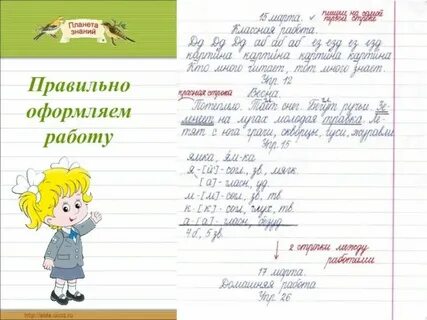 Планета
знаний
Правильно
оформляем
работу
http://aida.ucoz.ru
15 марта.
пишем на самой
первой строке
Классная работа.
Дд Дд Дд аб аб аб
картина картина картина картина
Кто много читает, тот много знает.
Упр. 12
красная строка
Весна.
Потеплело. Тает снег. Бегут ручьи. Зе-
ленеет на лугах молодая травка. Ле-
тят с юга грачи, скворцы, гуси, журавли.
Упр. 15
ямка, ям-ка
я-[й']-согл., зв., мягк.
[а]-гласн., уд.
м-[м]-согл., зв., тв.
к-[к]-согл., глух., тв.
а-[а]-гласн., безуд.
4 б., 5 зв.
2 строчки между
работами
17 марта.
Домашняя работа
Упр. 26